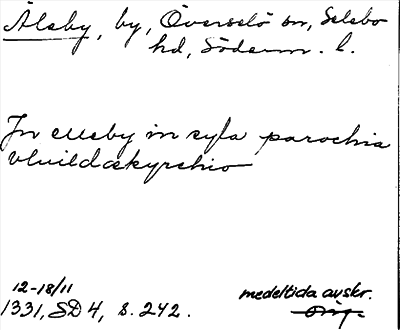 Äleby, by, Överselö sn, Selebo
hd, Söderm. l.
In elleby in syla parochia
vlvildækyrchio
12-18/11
1331, SD 4, s. 242.
medeltida avskr.